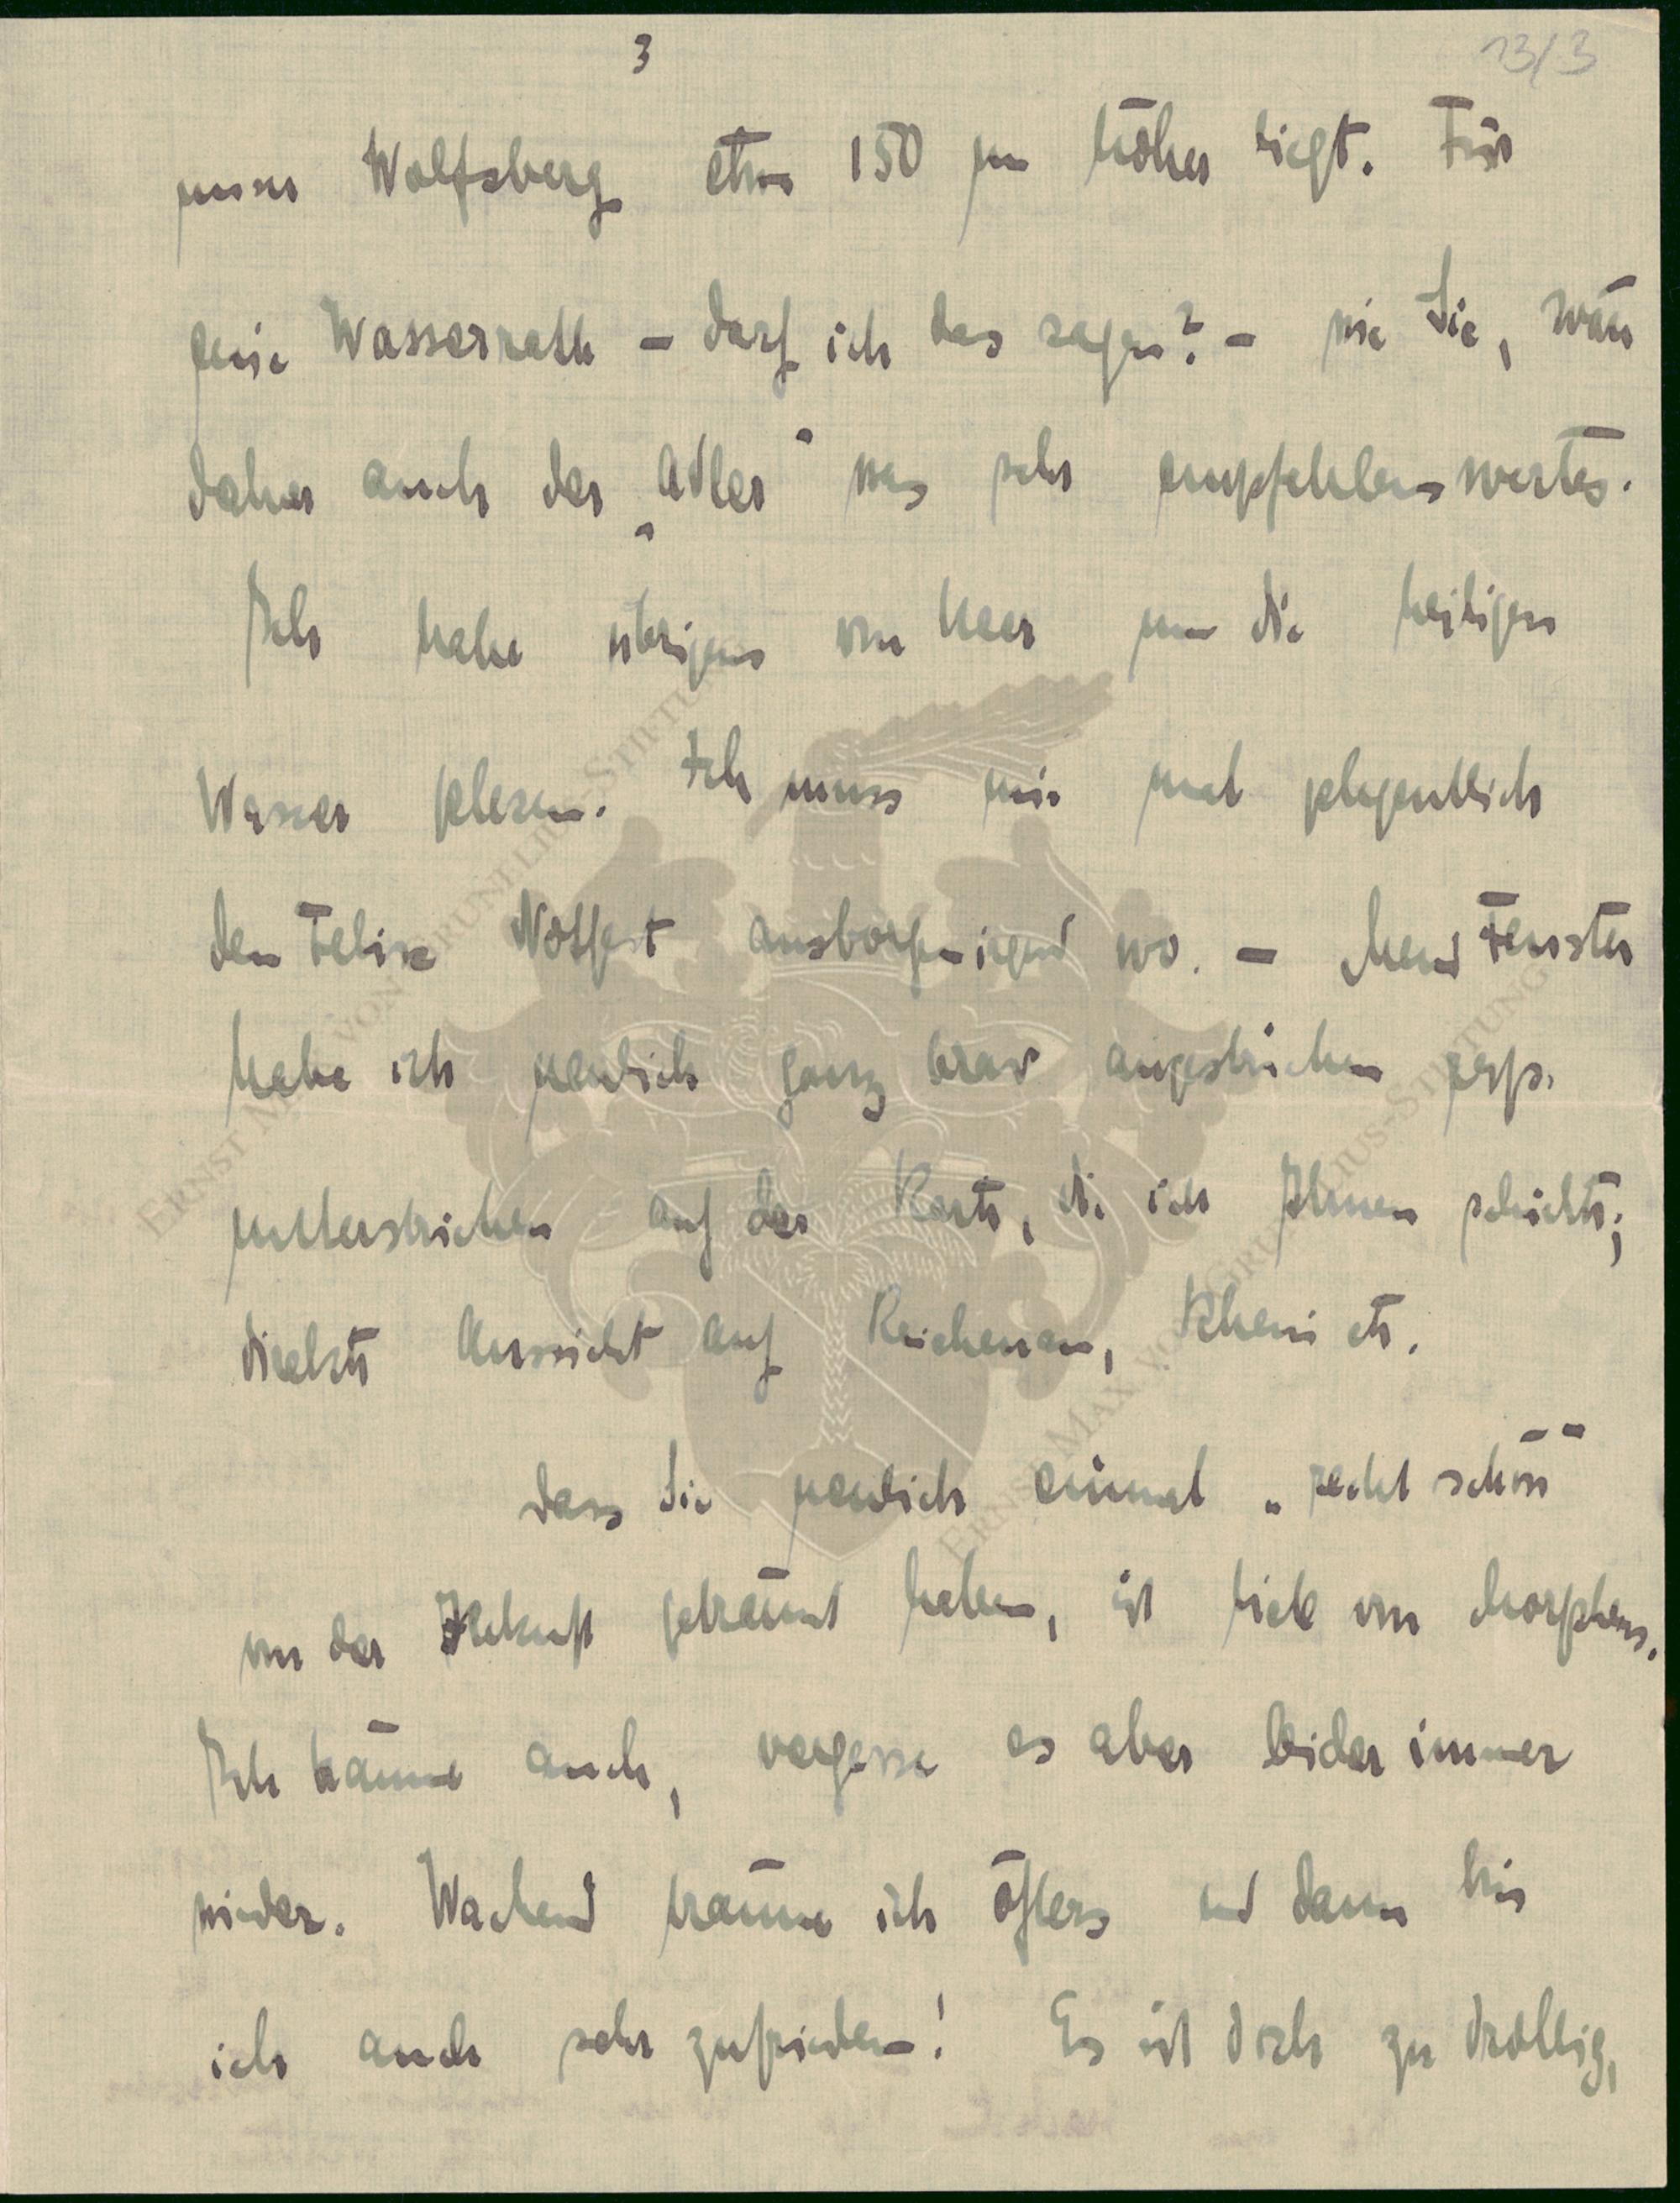 3
13/3
unser Wolfsberg etwa 150 m höher liegt. Für
eine Wasserratte - darf ich das sagen? - wie Sie, wäre
daher auch der „Adler" was sehr empfehlenswertes.
Ich habe übrigens von Heer nur die heiligen
Wasser gelesen. Ich muss mir mal gelegentlich
den Felix Notfest ausborgen irgend wo. - Mein Fenster
habe ich neulich ganz brav angestrichen resp.
unterstrichen auf der Karte, die ich Ihnen schickte;
direkte Aussicht auf Reichenau, Rhein etc.
Dass Sie neulich einmal „recht schön"
von der Zukunft geträumt haben, ist lieb von Morpheus.
Ich träume auch, vergesse es aber leider immer
wieder. Wachend träume ich öfters und dann bin
ich auch sehr zufrieden! Es ist doch zu drollig,
ERNST MAX VON GRUNELIUS-STIFTUNG
ERNST MAX VON GRUNELIUS-STIFTUNG